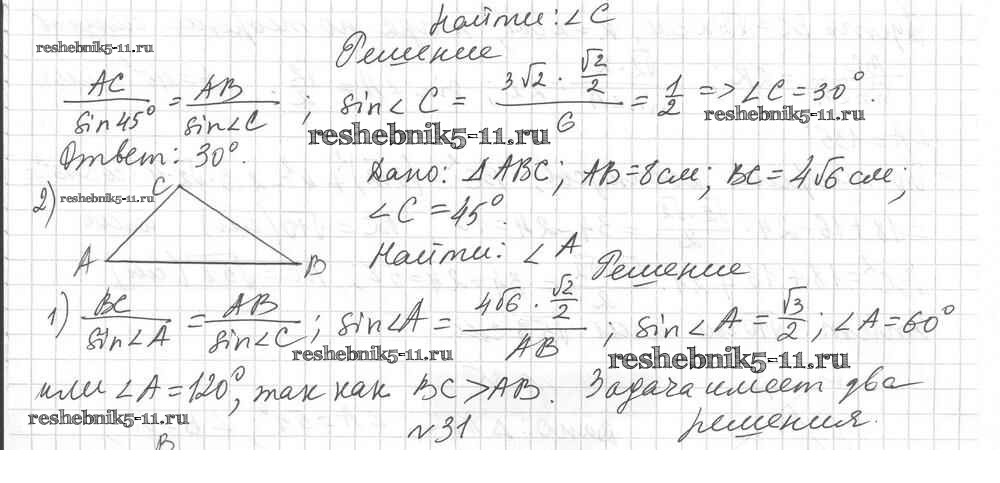 Найти: ∠C
reshebnik5-11.ru
Решение
AC/sin45° = AB/sin∠C ; sin∠C = (3√2 · √2/2)/6 = 1/2 => ∠C = 30°.
reshebnik5-11.ru
reshebnik5-11.ru
Ответ: 30°.
Дано: ΔABC; AB=8см; BC=4√6 см;
2)
C
reshebnik5-11.ru
∠C = 45°.
A
B
Найти: ∠A
Решение
1) BC/sin∠A = AB/sin∠C ; sin∠A = (4√6 · √2/2)/AB ; sin∠A = √3/2 ; ∠A=60°
reshebnik5-11.ru
reshebnik5-11.ru
или ∠A=120°, так как BC>AB. Задача имеет два
reshebnik5-11.ru
решения.
№31
B